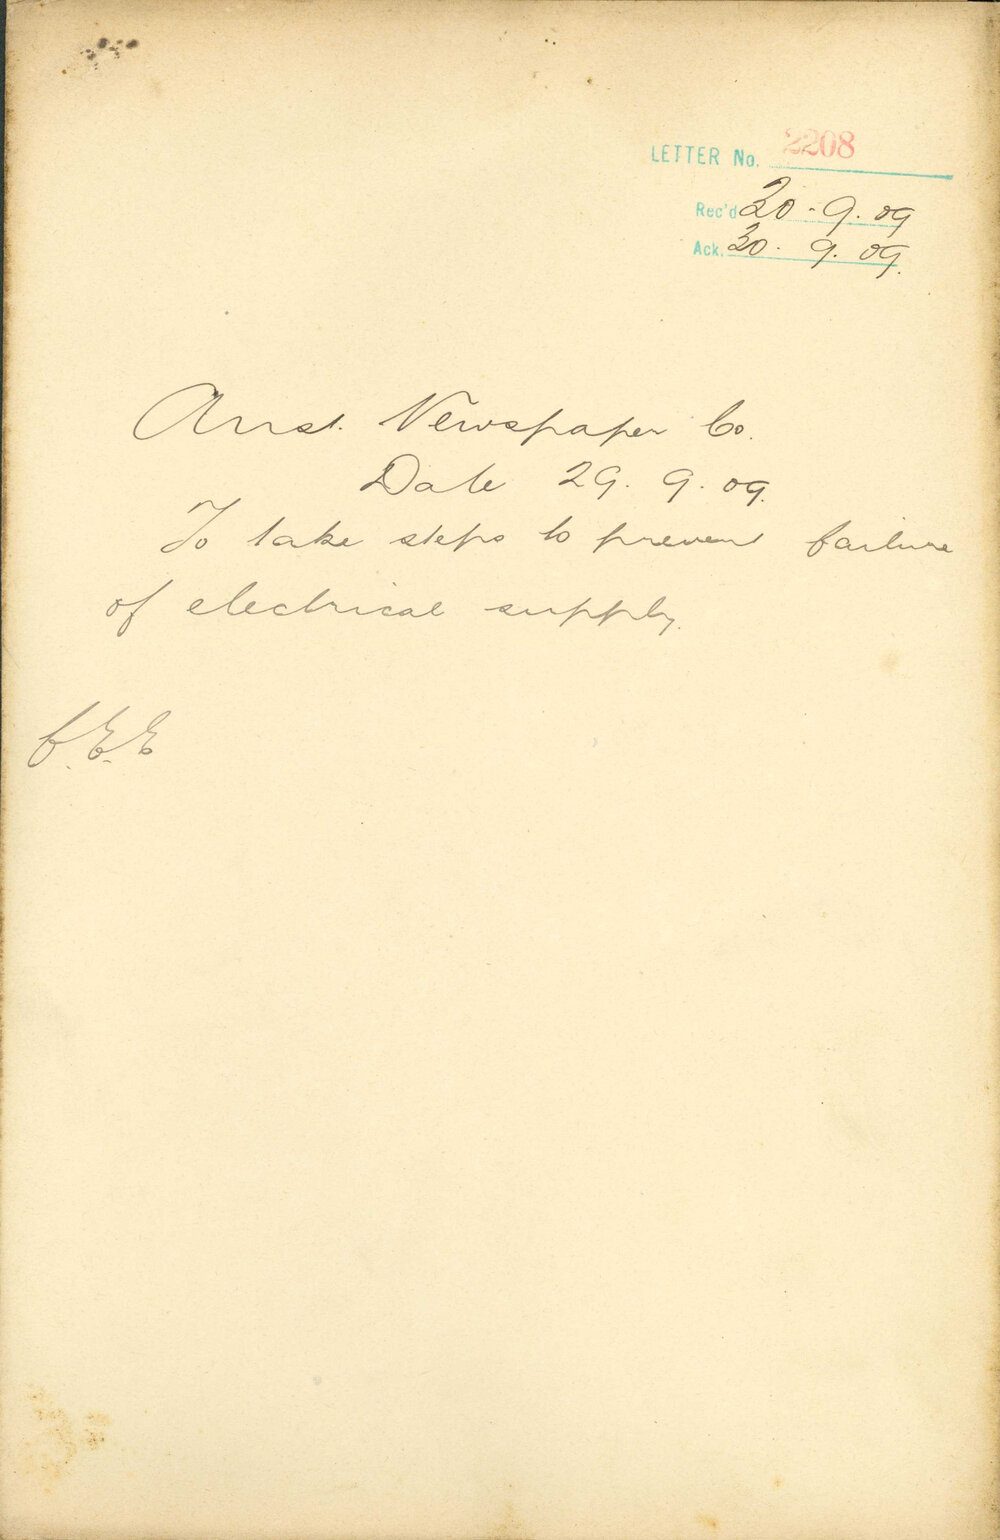 LETTER No. 2208
Rec'd 30 - 9. 09
Ack. 30. 9. 09.
Aust. Newspaper Co.
Date 29. 9. 09.
To take steps to prevent failure
of electrical supply.
C. E. E